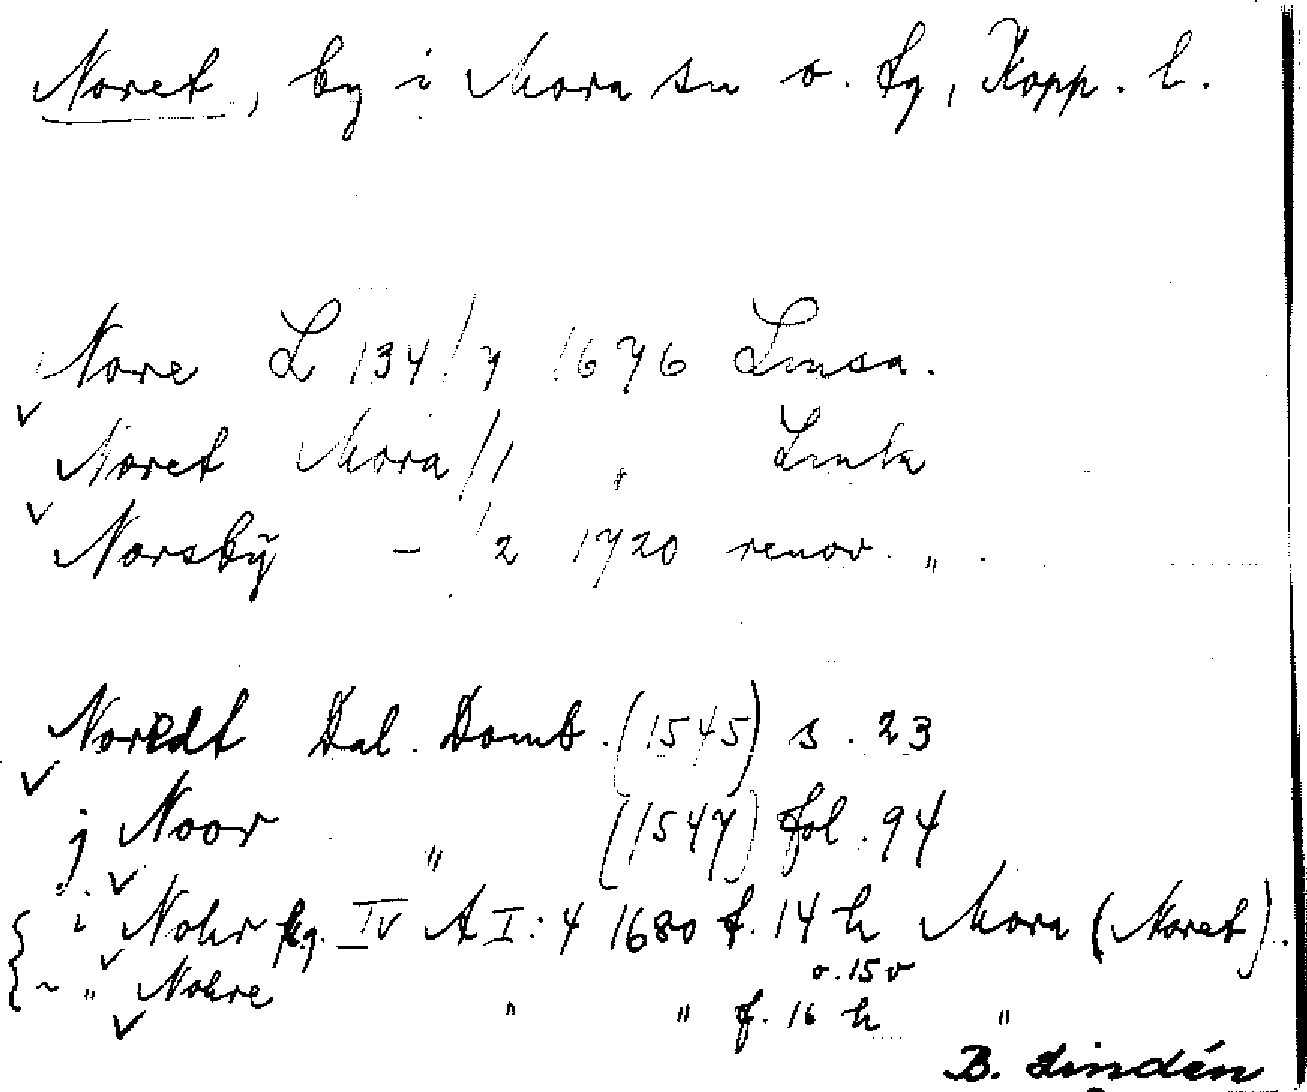 Noret, by i Mora sn o. fg, Kopp. l.
Nore L 134/7 1676 Lmsa.
Noret Mora/1 " Lmta
Norsbÿ - /2 1720 renov. " .
Noredt Dal. Domb. (1545) s. 23
j Noor " (1547) fol. 94
i Nohr kg. IV A I:4 1680 f. 14 h Mora (Noret).
o. 15 v
~ " Nohre " " f. 16 h "
B. Lindén